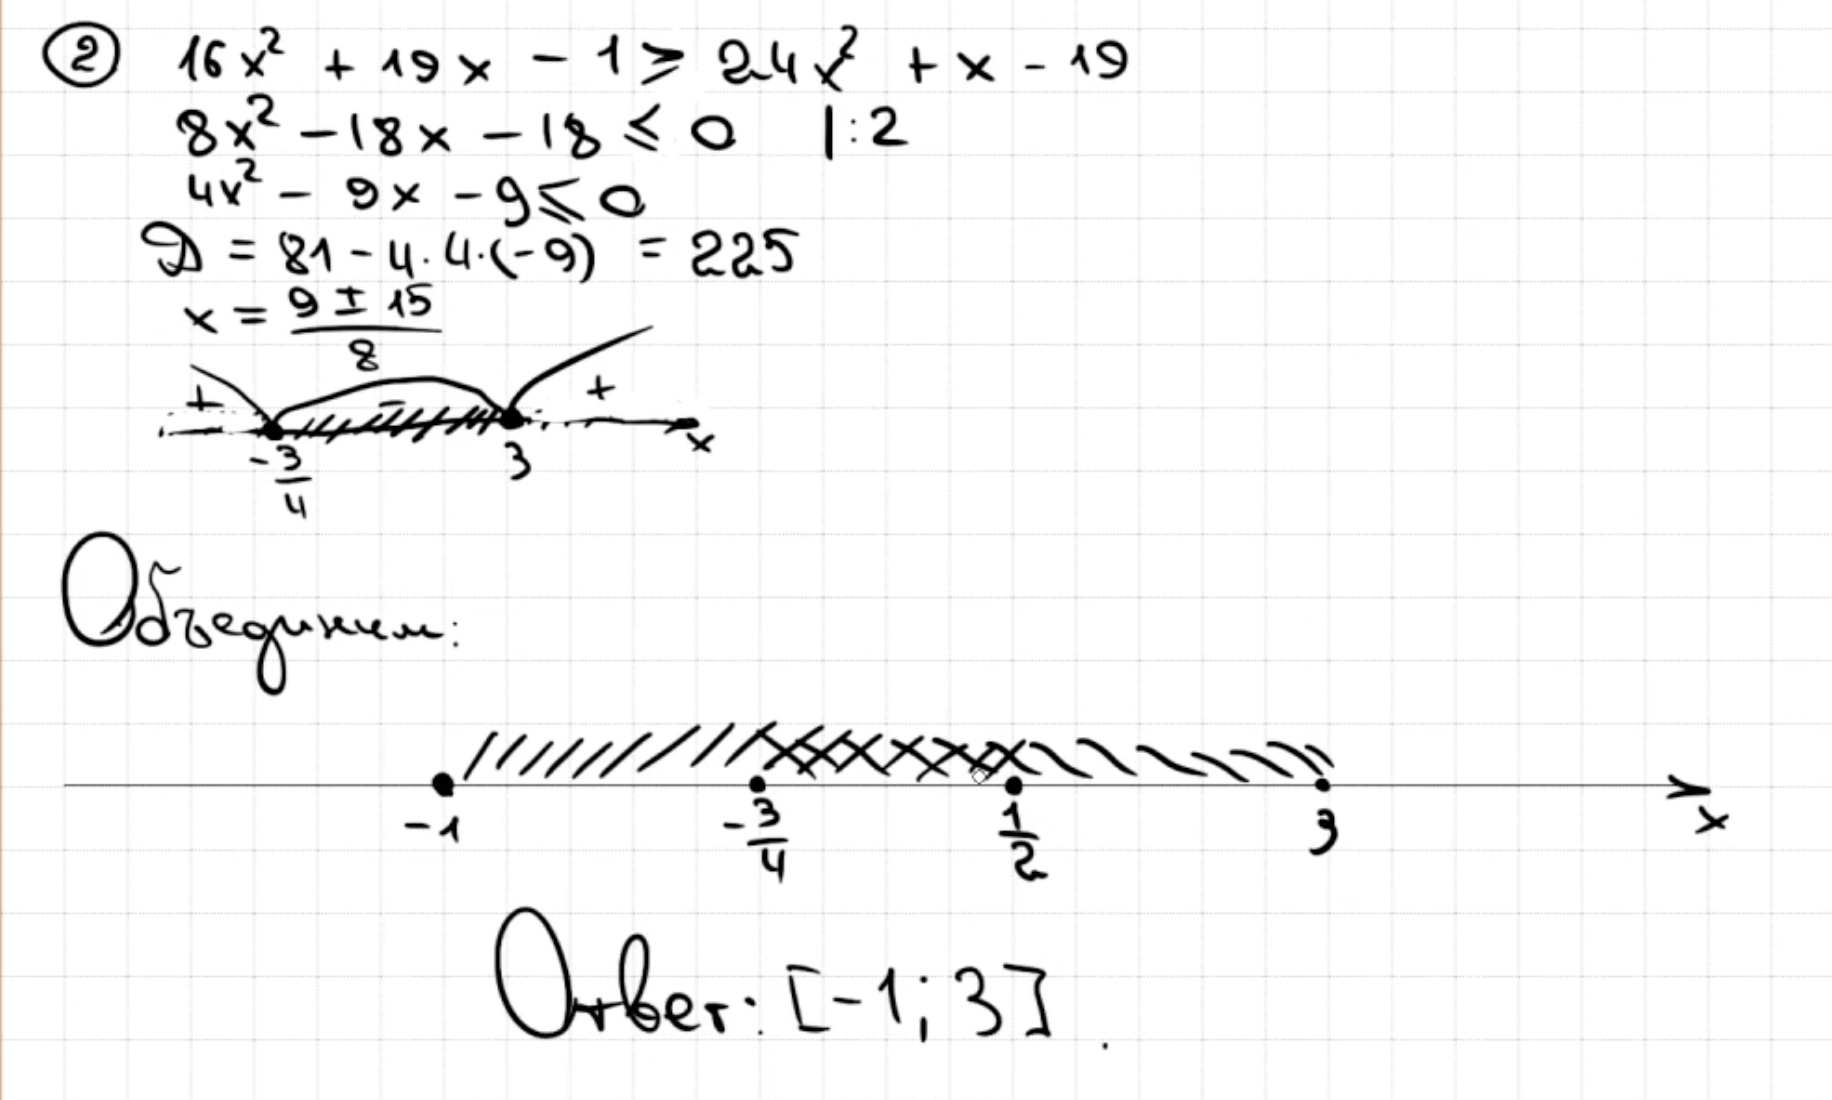 ② 16x² + 19x - 1 ≥ 24x² + x - 19
8x² - 18x - 18 ≤ 0 |:2
4x² - 9x - 9 ≤ 0
D = 81 - 4·4·(-9) = 225
x = (9 ± 15)/8
+ - +
-3/4 3 x
Объединим:
-1 -3/4 1/2 3 x
Ответ: [-1; 3].